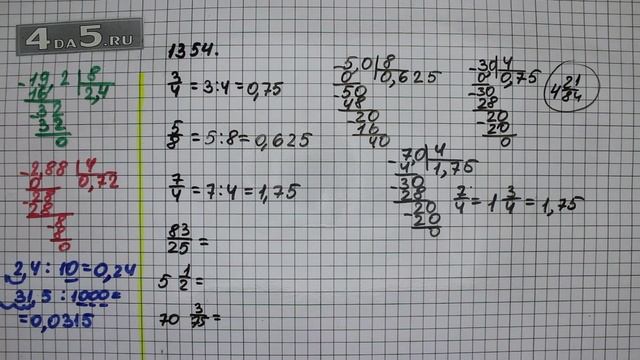 4DA5.RU
1354.
19,2 | 8
16 | 2,4
32
32
0
2,88 | 4
0 | 0,72
28
28
8
8
0
2,4 : 10 = 0,24
31,5 : 1000 =
= 0,0315
3/4 = 3:4 = 0,75
5/8 = 5:8 = 0,625
7/4 = 7:4 = 1,75
83/25 =
5 1/2 =
70 3/75 =
5,0 | 8
0 | 0,625
50
48
20
16
40
30 | 4
0 | 0,75
30
28
20
20
0
4 21/84
7,0 | 4
4 | 1,75
30
28
20
20
0
7/4 = 1 3/4 = 1,75